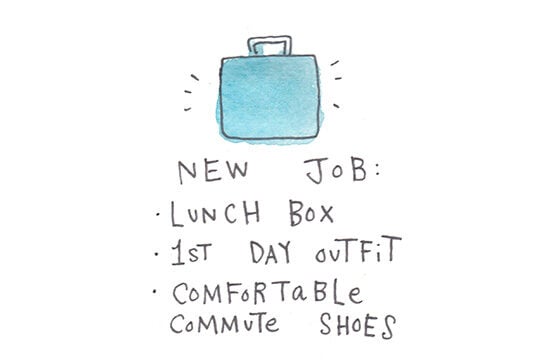 NEW JOB:
· LUNCH BOX
· 1ST DAY OUTFiT
· COMFORTaBLe
COMMUTe SHOES